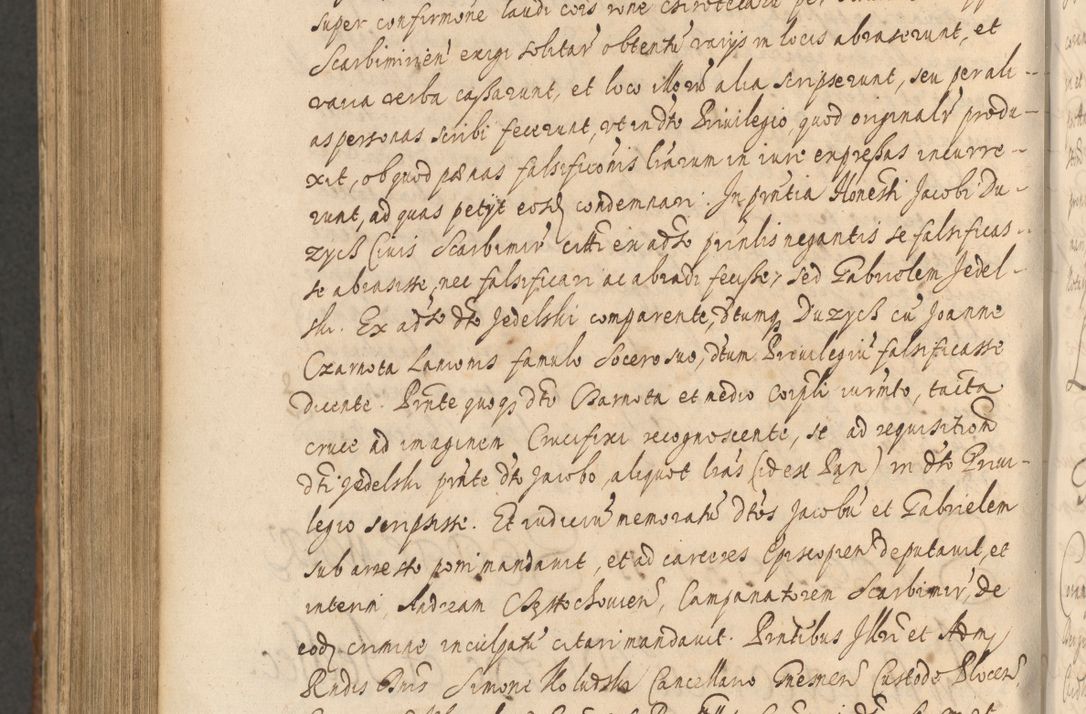 super confirmõne laudi cois rõne
Scarbimirien̄ exigi solitar̄ obtentu varijs in locis abraserunt, et
varia verba cassarunt, et loco illorũ alia scripserunt, seu per ali-
as personas scribi fecerunt, vt in dto Priuilegio, quod originalr produ-
xit, ob quod pænas falsificõnis lrarum in iure expressas incurre-
runt, ad quas petijt eosd condemnari. In pñtia Honesti Jacobi Du-
zych Ciuis Scarbimir citti ex adso prinlis negantis se falsificas-
se abrasisse, nec falsificari ac abradi fecisse, sed Gabrielem Jedel-
ski. Ex adso dto Jedelski comparente, dtumq Duzych cũ Joanne
Czarnota Lanionis famulo Socero suo, dtum Priuilegiũ falsificasse
dicente. Pñte quoq dto Czarnota et medio corpli iurmto, tacta
cruce ad imaginem Crucifixi recognoscente, se ad requisitionẽ
dti Jedelski pñte dto Jacobo, aliquot lras (id est Pan) in dto Priui-
legio scripsisse. Et iudiciũ memoratũ dtos Jacobũ et Gabrielem
sub arresto poni mandauit, et ad carceres Episcopien deputauit, et
interim Andream Częstochouien, Campanatorem Scarbimir, de
eod crimine inculpatũ citari mandauit. Pñtibus Illri et Adm
Rndis Dnis Simone Kołudzki Cancellario Gnesnen Custode Plocen,